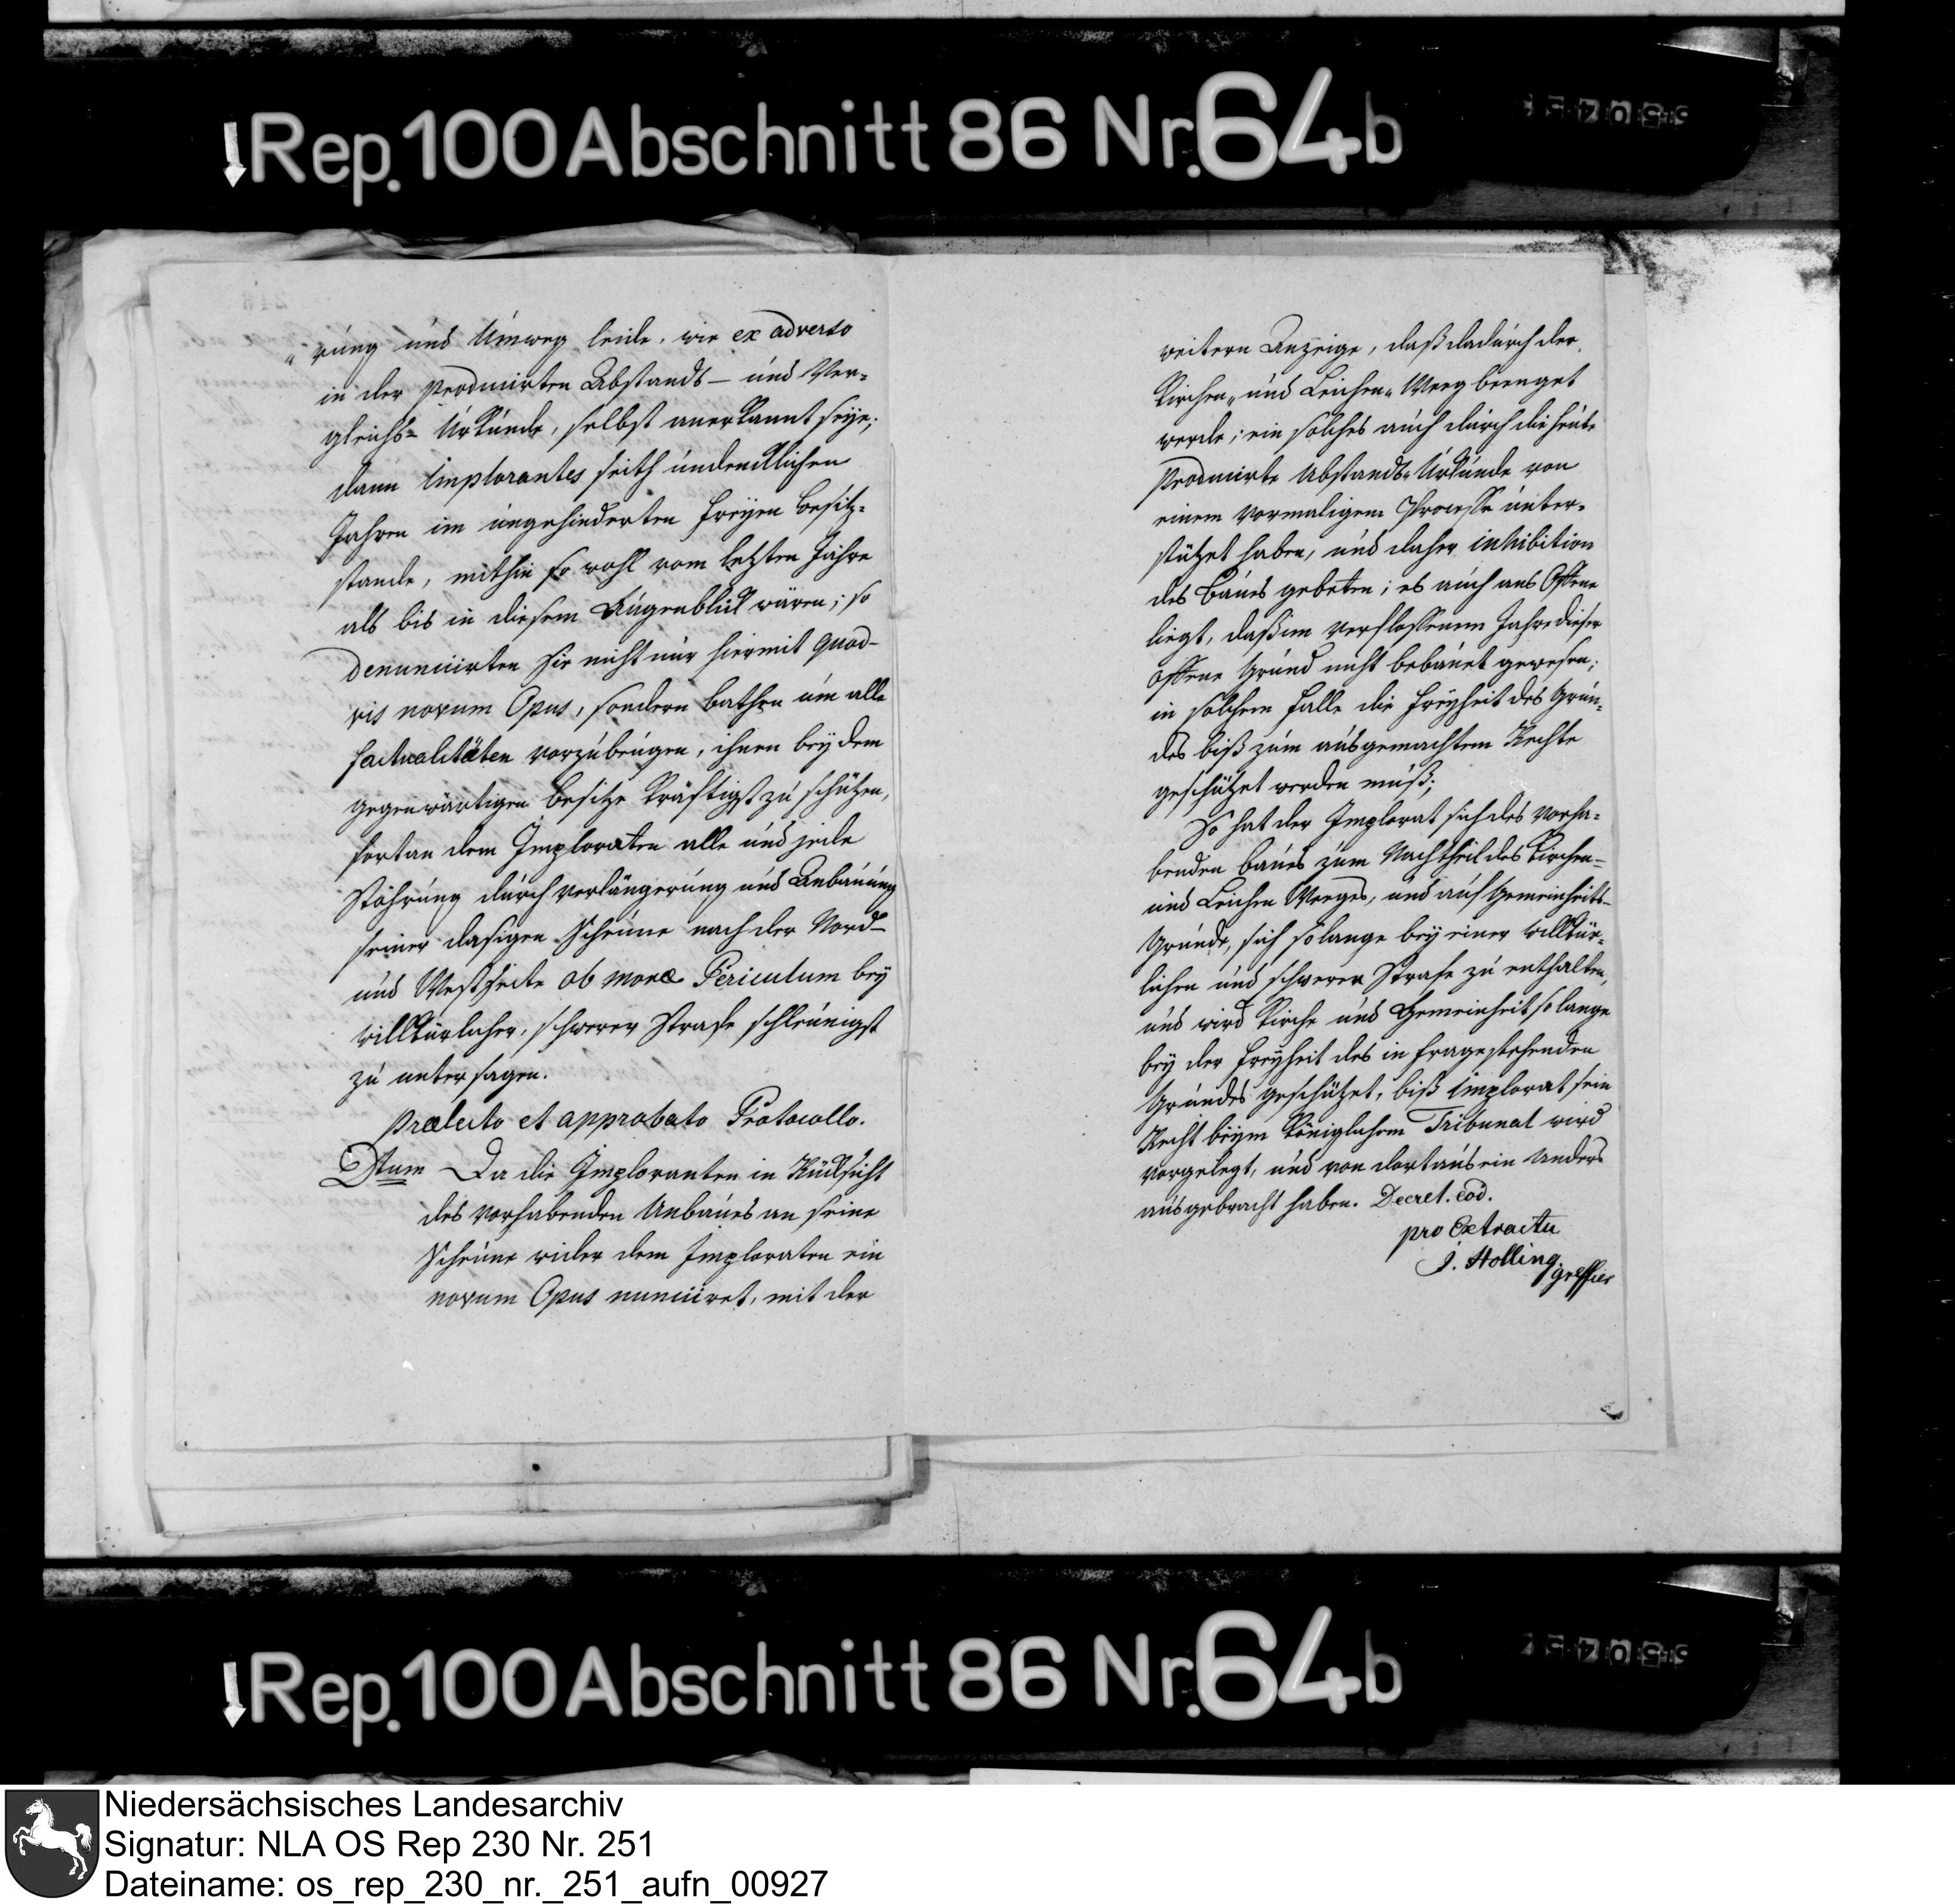 ↓Rep.100 Abschnitt 86 Nr.64b
„rung und Umweg leide, wie ex adverso
in der producirten Abstands- und Ver-
gleichs- Urkunde, selbst anerkannt seye;
dann Implorantes seith undendlichen
Jahren im ungehinderten freyen Besitz-
stande, mithin so wohl vom letzten Jahre
als bis in diesem Augenblick wären; so
denunciirten Sie nicht nur hiermit quod-
vis novum Opus, sondern bathen um alle
factualitäten vorzubeugen, ihnen bey dem
gegenwärtigen Besitze kräftigst zu schützen,
fortan dem Imploraten alle und jede
Stöhrung durch verlängerung und Anbauung
seiner dasigen Scheune nach der Nord-
und Westseite ob moræ Periculum bey
willkürlicher, schwerer Strafe schleunigst
zu untersagen.
Prælecto et approbato Protocollo.
Dtum Da die Imploranten in Rücksicht
des vorhabenden Anbaues an seine
Scheune wider dem Imploraten ein
novum Opus nunciiret, mit der
weitern Anzeige, daß dadurch der
Kirchen„ und Leichen„ Weeg beenget
werde; ein solches auch durch die heute
producirte Abstands„ Urkunde von
einem vormaligem Processe unter-
stützet haben, und daher inhibition
des Baues gebeten; es auch ans Offene
liegt, daß im verflossenem Jahre dieser
offene Grund nicht bebauet gewesen;
in solchem falle die freyheit des Grun-
des biß zum ausgemachtem Rechte
geschützet werden muß;
So hat der Implorat sich des vorha-
benden Baues zum Nachtheil des Kirchen-
und Leichen Weeges, und auf Gemeinheits-
Grunde, sich so lange bey einer willkür-
lichen und schwerer Strafe zu enthalten,
und wird Kirche und Gemeinheit so lange
bey der freyheit des in frage stehenden
Grundes geschützet, biß Implorat sein
Recht beym Königlichem Tribunal wird
vorgelegt, und von dort aus ein Anders
ausgebracht haben. Decret. eod.
pro Extractu
J. Holling
greffier
↓Rep.100 Abschnitt 86 Nr.64b
Niedersächsisches Landesarchiv
Signatur: NLA OS Rep 230 Nr. 251
Dateiname: os_rep_230_nr._251_aufn_00927